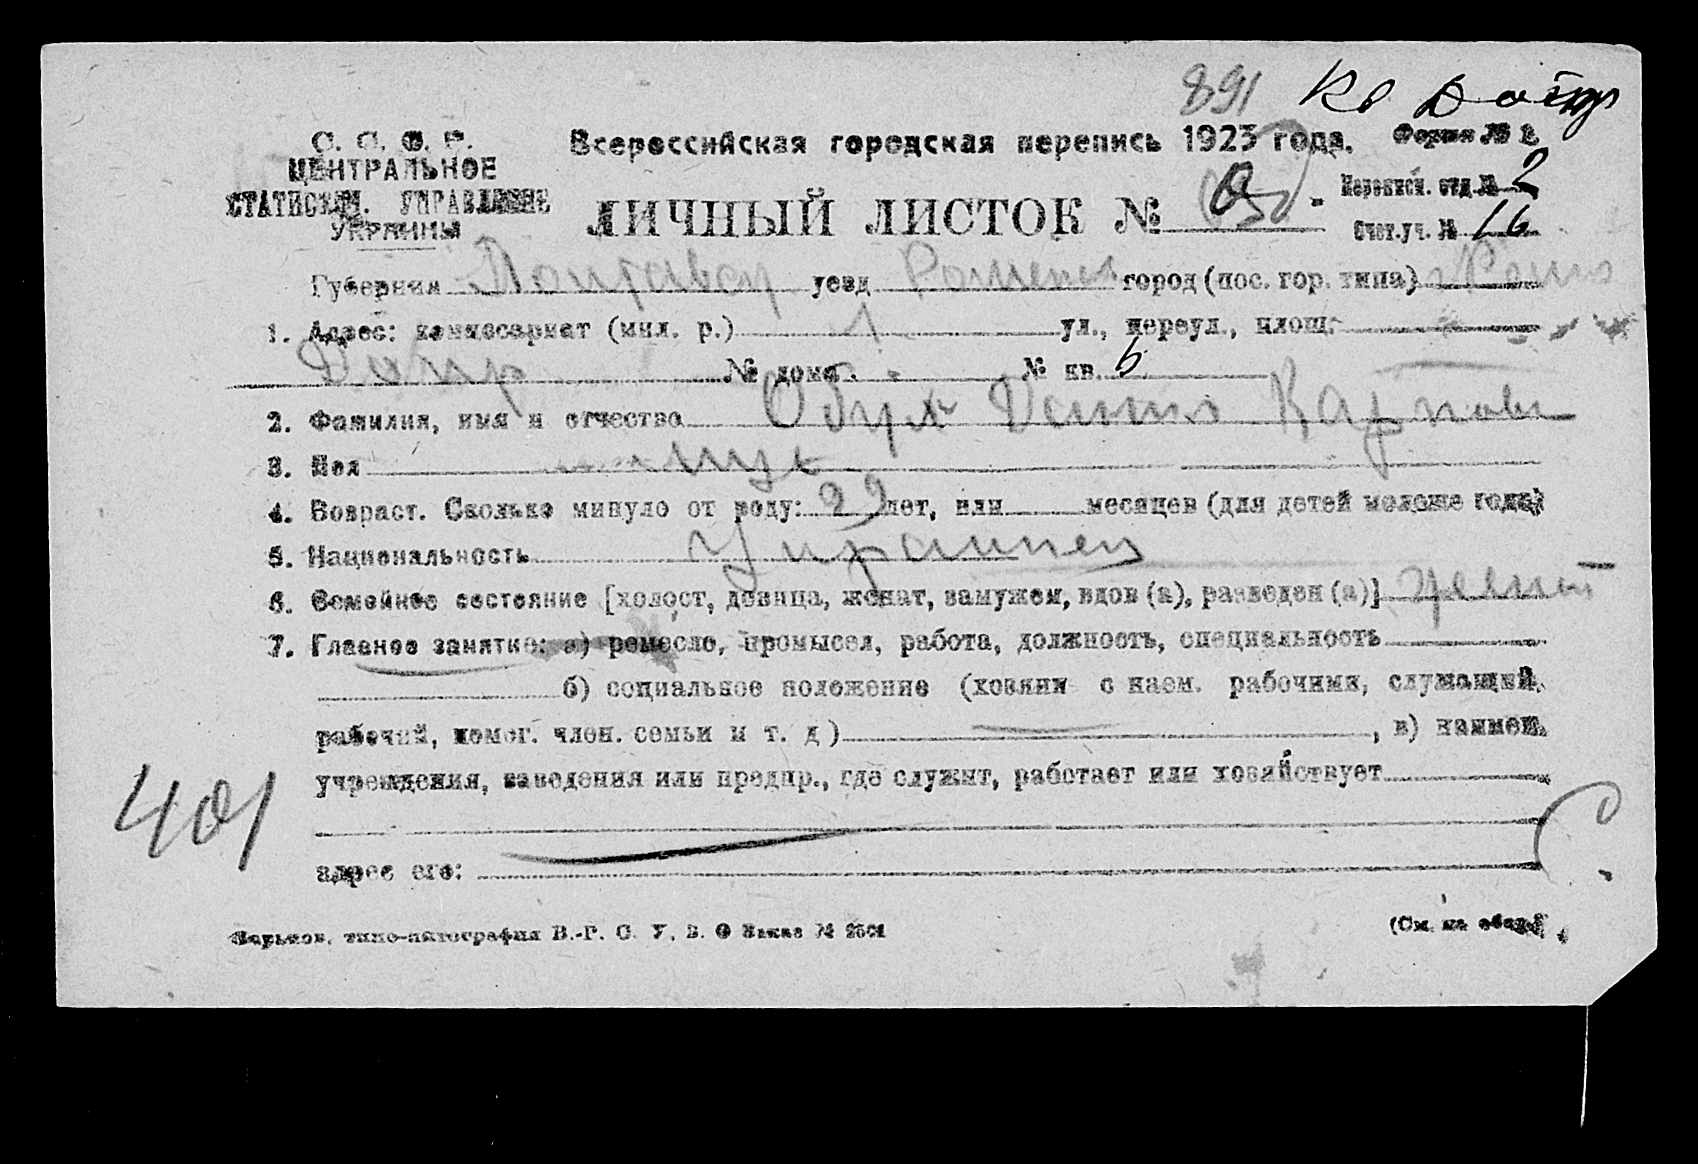 891
С. С. С. Р.
ЦЕНТРАЛЬНОЕ
СТАТИСТИЧ. УПРАВЛЕНИЕ
УКРАИНЫ
Всероссийская городская перепись 1923 года. Форма № 2.
ЛИЧНЫЙ ЛИСТОК №
Переписн. отд. № 2
Счет. уч. № 16
Губерния Полтавск уезд Роменск город (пос. гор. типа)
1. Адрес: комиссариат (мил. р.) 1 ул., переул., площ.
Допр № дома № кв. 6
2. Фамилия, имя и отчество Обух Карпович
3. Пол муж
4. Возраст. Сколько минуло от роду: 29 лет, или месяцев (для детей моложе года)
5. Национальность Украинец
6. Семейное состояние [холост, девица, женат, замужем, вдов (а), разведен (а)] женат
7. Главное занятие: а) ремесло, промысел, работа, должность, специальность
б) социальное положение (хозяин с наем. рабочими, служащий,
рабочий, помог. член. семьи и т. д.) , в) наимен.
учреждения, заведения или предпр., где служит, работает или хозяйствует
401
адрес его:
Харьков, типо-литография В.-Г. С. У. В. О Заказ № 2501
(См. на обор.)